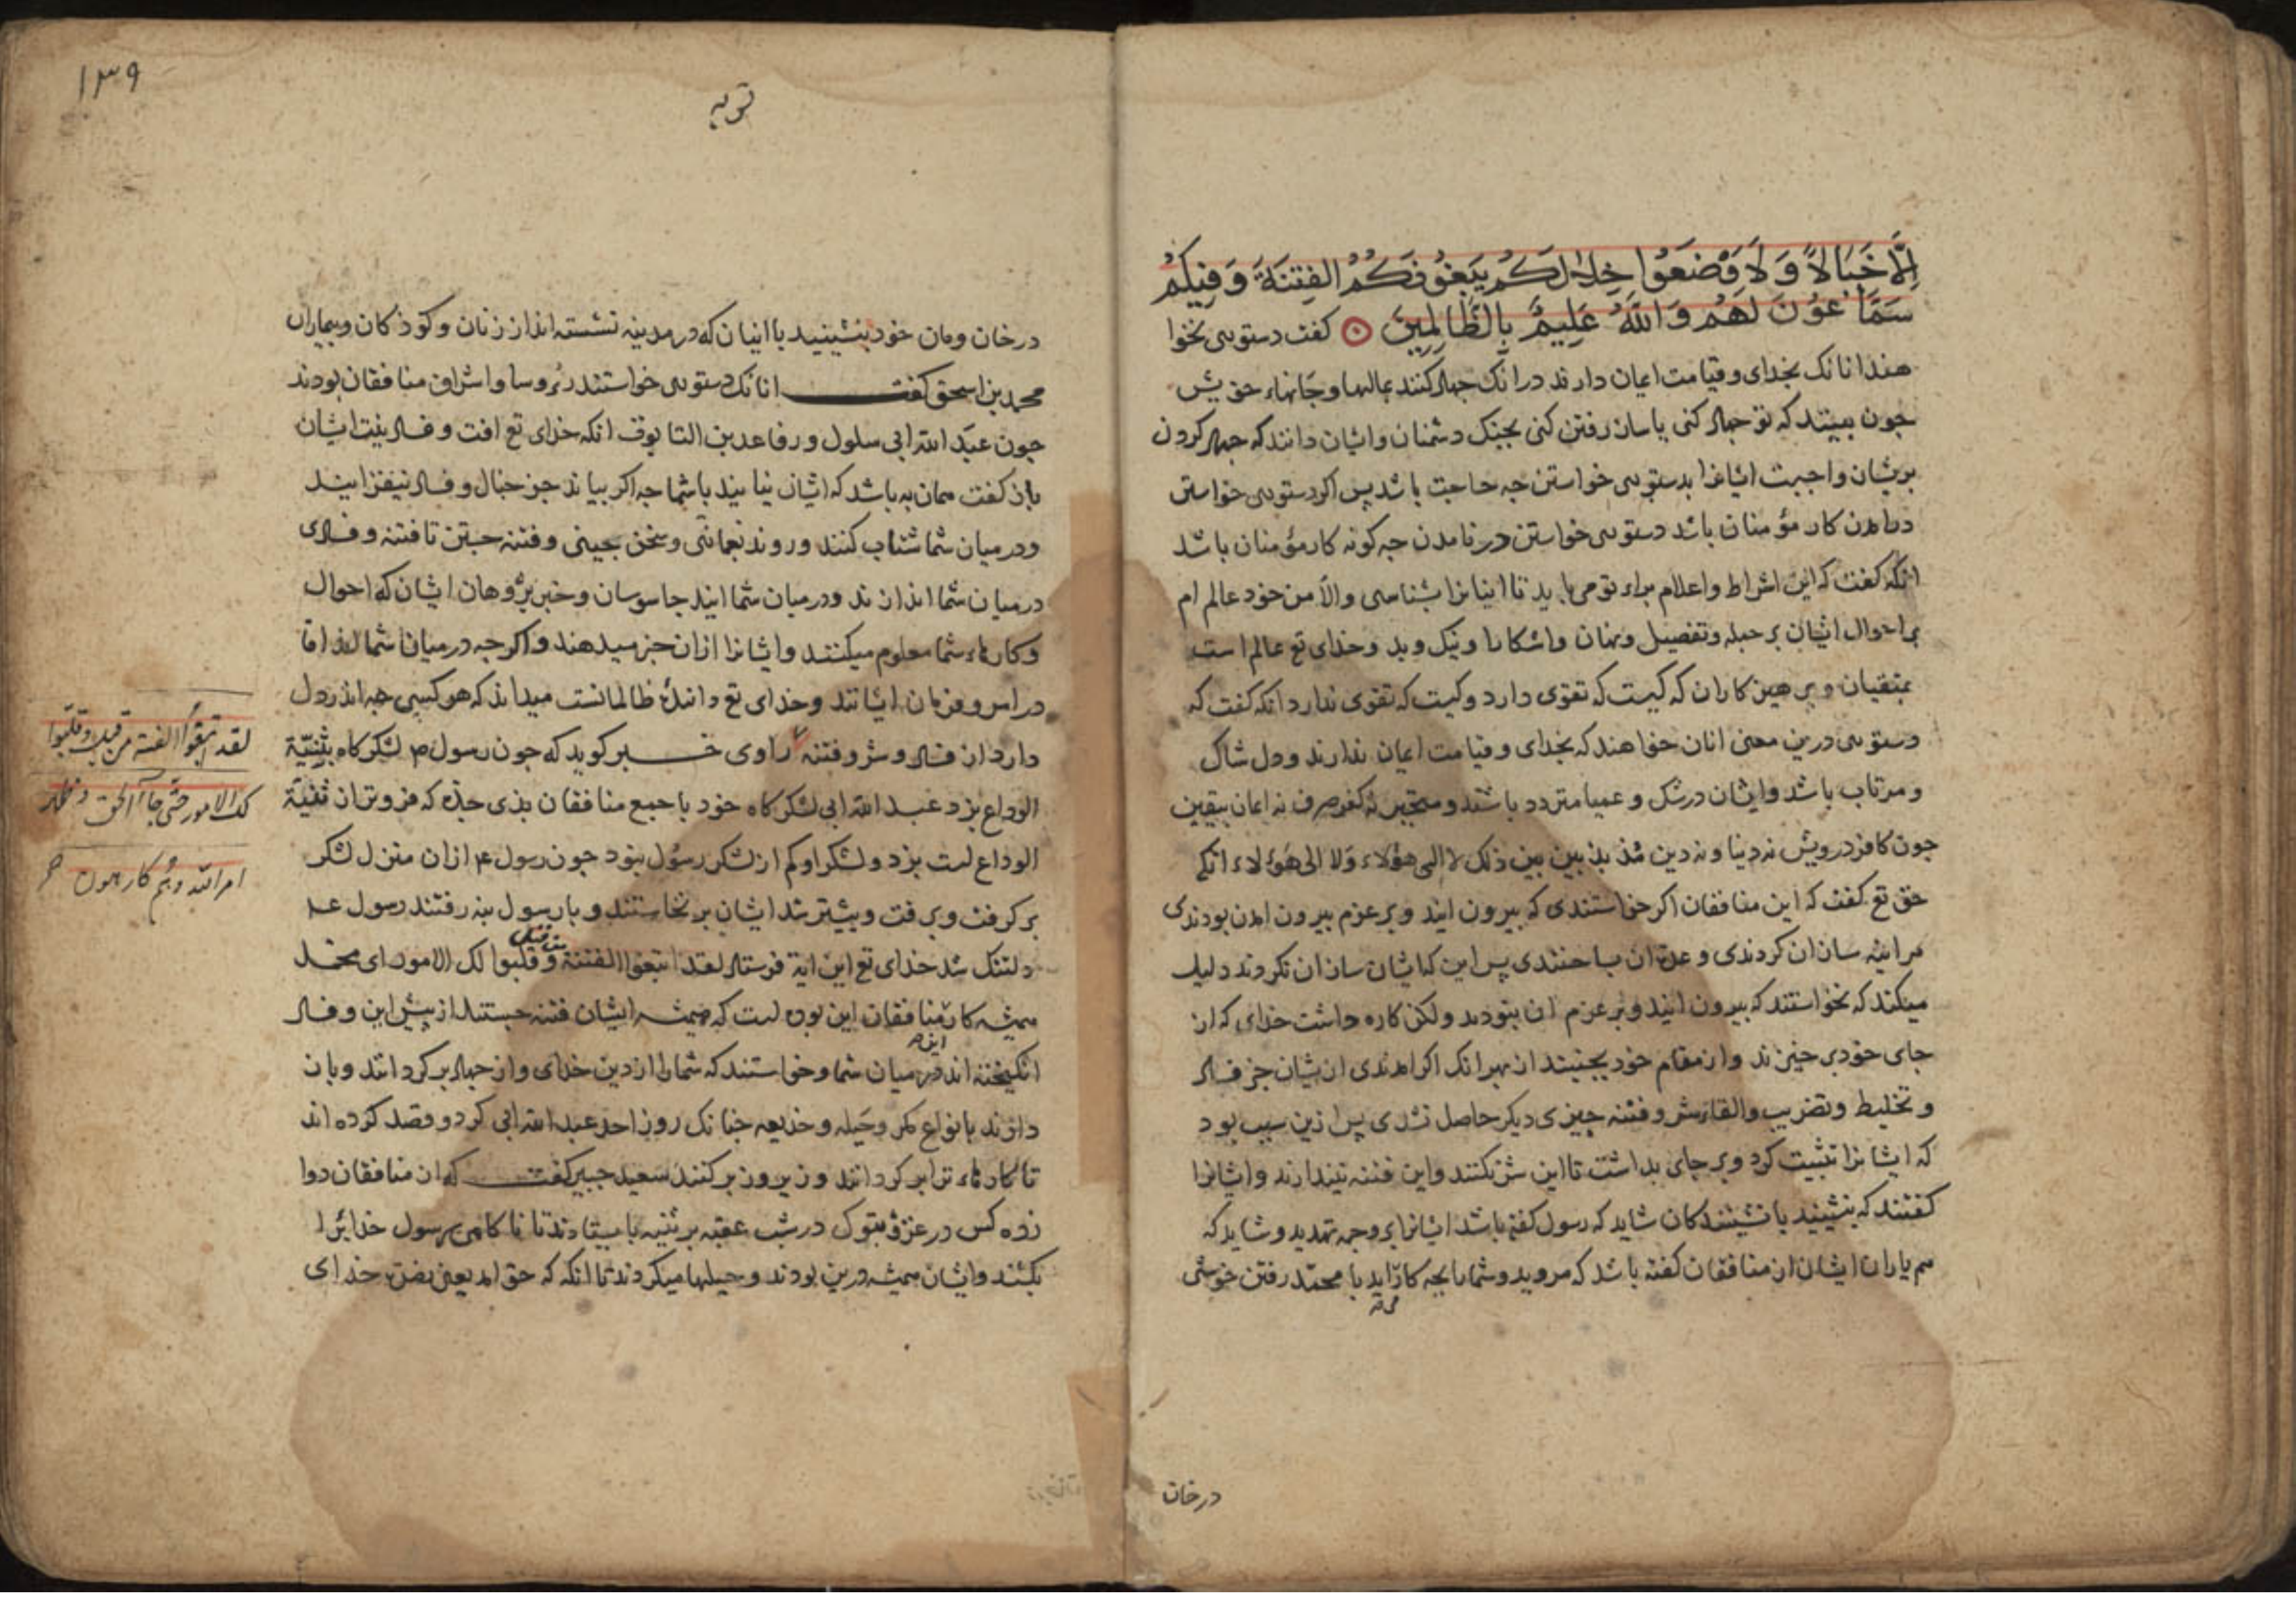 إِلَّا خَبَالًا وَلَا وْضَعُوا خِلَالَكُمْ يَبْغُونَكُمُ الْفِتْنَةَ وَفِيكُمْ
سَمَّاعُونَ لَهُمْ وَاللَّهُ عَلِيمٌ بِالظَّالِمِينَ كفت دستوری نخوا
هند انانک بخدای و قیامت ایمان دارند در انک جهاد کنند بمالها و جانهاء خویش
جون ببینند که تو جهاد کنی یا سان رفتن کنی بجنک دشمنان و ایشان دانند که جهاد کردن
بریشان واجبست ایشانرا بدستوری خواستن جه حاجت باشد بس اکر دستوری خواستن
در امدن کار مؤمنان باشد دستوری خواستن در نامدن جه کونه کار مؤمنان باشد
انکه کفت که این اشراط و اعلام براء تو می باید تا اینانرا بشناسی والا من خود عالم ام
بر احوال ایشان بر جمله و تفصیل و نهان و اشکارا و نیک و بد و خدای تع عالم است
بمتقیان و برهیزکاران که کیست که تقوی دارد و کیست که تقوی ندارد انکه کفت که
دستوری درین معنی انان خواهند که بخدای و قیامت ایمان ندارند و دل شاک
و مرتاب باشد و ایشان در شک و عمیا متردد باشند و متحیر نه کفر صرف نه ایمان بیقین
جون کافر درویش نه دنیا و نه دین مذبذبین بین ذلک لا الی هؤلاء ولا الی هؤلاء انکه
حق تع کفت که این منافقان اکر خواستندی که بیرون ایند و بر عزم بیرون امدن بودندی
هراینه سان ان کردندی و عدت ان بساختندی بس این که ایشان ساز ان نکردند دلیل
میکند که نخواستند که بیرون ایند و بر عزم ان نبودند ولکن کاره داشت خدای که از
جای خود بر خیزند و از مقام خود بجنبند از بهر انک اکر امدندی از یشان جز فساد
و تخلیط و تضریب و القاء شر و فتنه جیزی دیکر حاصل نشدی بس ازین سبب بود
که ایشانرا تثبیت کرد و بر جای بداشت تا این شر نکنند و این فتنه نیندازند و ایشانرا
کفتند که بنشینید با نشینندکان شاید که رسول کفته باشد ایشانرا بر وجه تهدید و شاید که
هم یاران ایشان از منافقان کفته باشد که مروید و شما را بجه کار اید با محمد رفتن خوشی
درخان
۱۳۹
توبه
درخان و مان خود بنشینید با اینان که در مدینه نشسته اند از زنان و کوذکان و بیماران
محمد بن اسحق کفت انانک دستوری خواستند رؤسا و اشراف منافقان بودند
جون عبد الله ابی سلول و رفاعه بن التابوت انکه خدای تع افت و فساد نیت ایشان
بان کفت همان به باشد که ایشان نیایند با شما جه اکر بیایند جز خبال و فساد نیفزایند
و در میان شما شتاب کنند و روند بنمامی و سخن جینی و فتنه جستن تا فتنه و فسادی
در میان شما اندازند و در میان شما ایند جاسوسان و خبر بژوهان ایشان که احوال
و کارهاء شما معلوم میکنند و ایشانرا ازان خبر میدهند و اکر جه در میان شما اند اما
در امر و فرمان ایشانند و خدای تع دانندۀ ظالمانست میداند که هر کسی جه اندر دل
دارد از فساد و شر و فتنه راوی خبر کوید که جون رسول م لشکرکاه بثنیة
الوداع بزد عبد الله ابی لشکرکاه خود با جمع منافقان بذی حده که فروتر از ثنیة
الوداع است بزد و لشکر او کم از لشکر رسول نبود جون رسول م ازان منزل لشکر
بر کرفت و برفت و بیشتر شد ایشان بر نخاستند و با رسول بنه رفتند رسول عم
دلتنک شد خدای تع این ایة فرستاد لقد ابتغوا الفتنة من قبل و قلبوا لک الامور ای محمد
همیشه کار منافقان این بوده است که همیشه ایشان فتنه جستند از بیش این و فساد
انکیخته اند در میان شما و خواستند که شما را از دین خدای و از جهاد بر کردانند و بان
دارند بانواع مکر و حیله و خدیعه جنانک روز احد عبد الله ابی کرد و قصد کرده اند
تا کارهاء ترا بر کردانند و زیر و زبر کنند سعید جبیر کفت که از منافقان دوا
زده کس در غزو تبوک در شب عقبه بر ثنیه بایستادند تا ناکاه رسول خدایرا
بکشند و ایشان همیشه درین بودند و حیلها میکردند تا انکه که حق امد یعنی نصرت خدای
لقد ابتغوا الفتنة من قبل و قلبوا
لک الامور حتی جاء الحق و ظهر
امر الله و هم کارهون